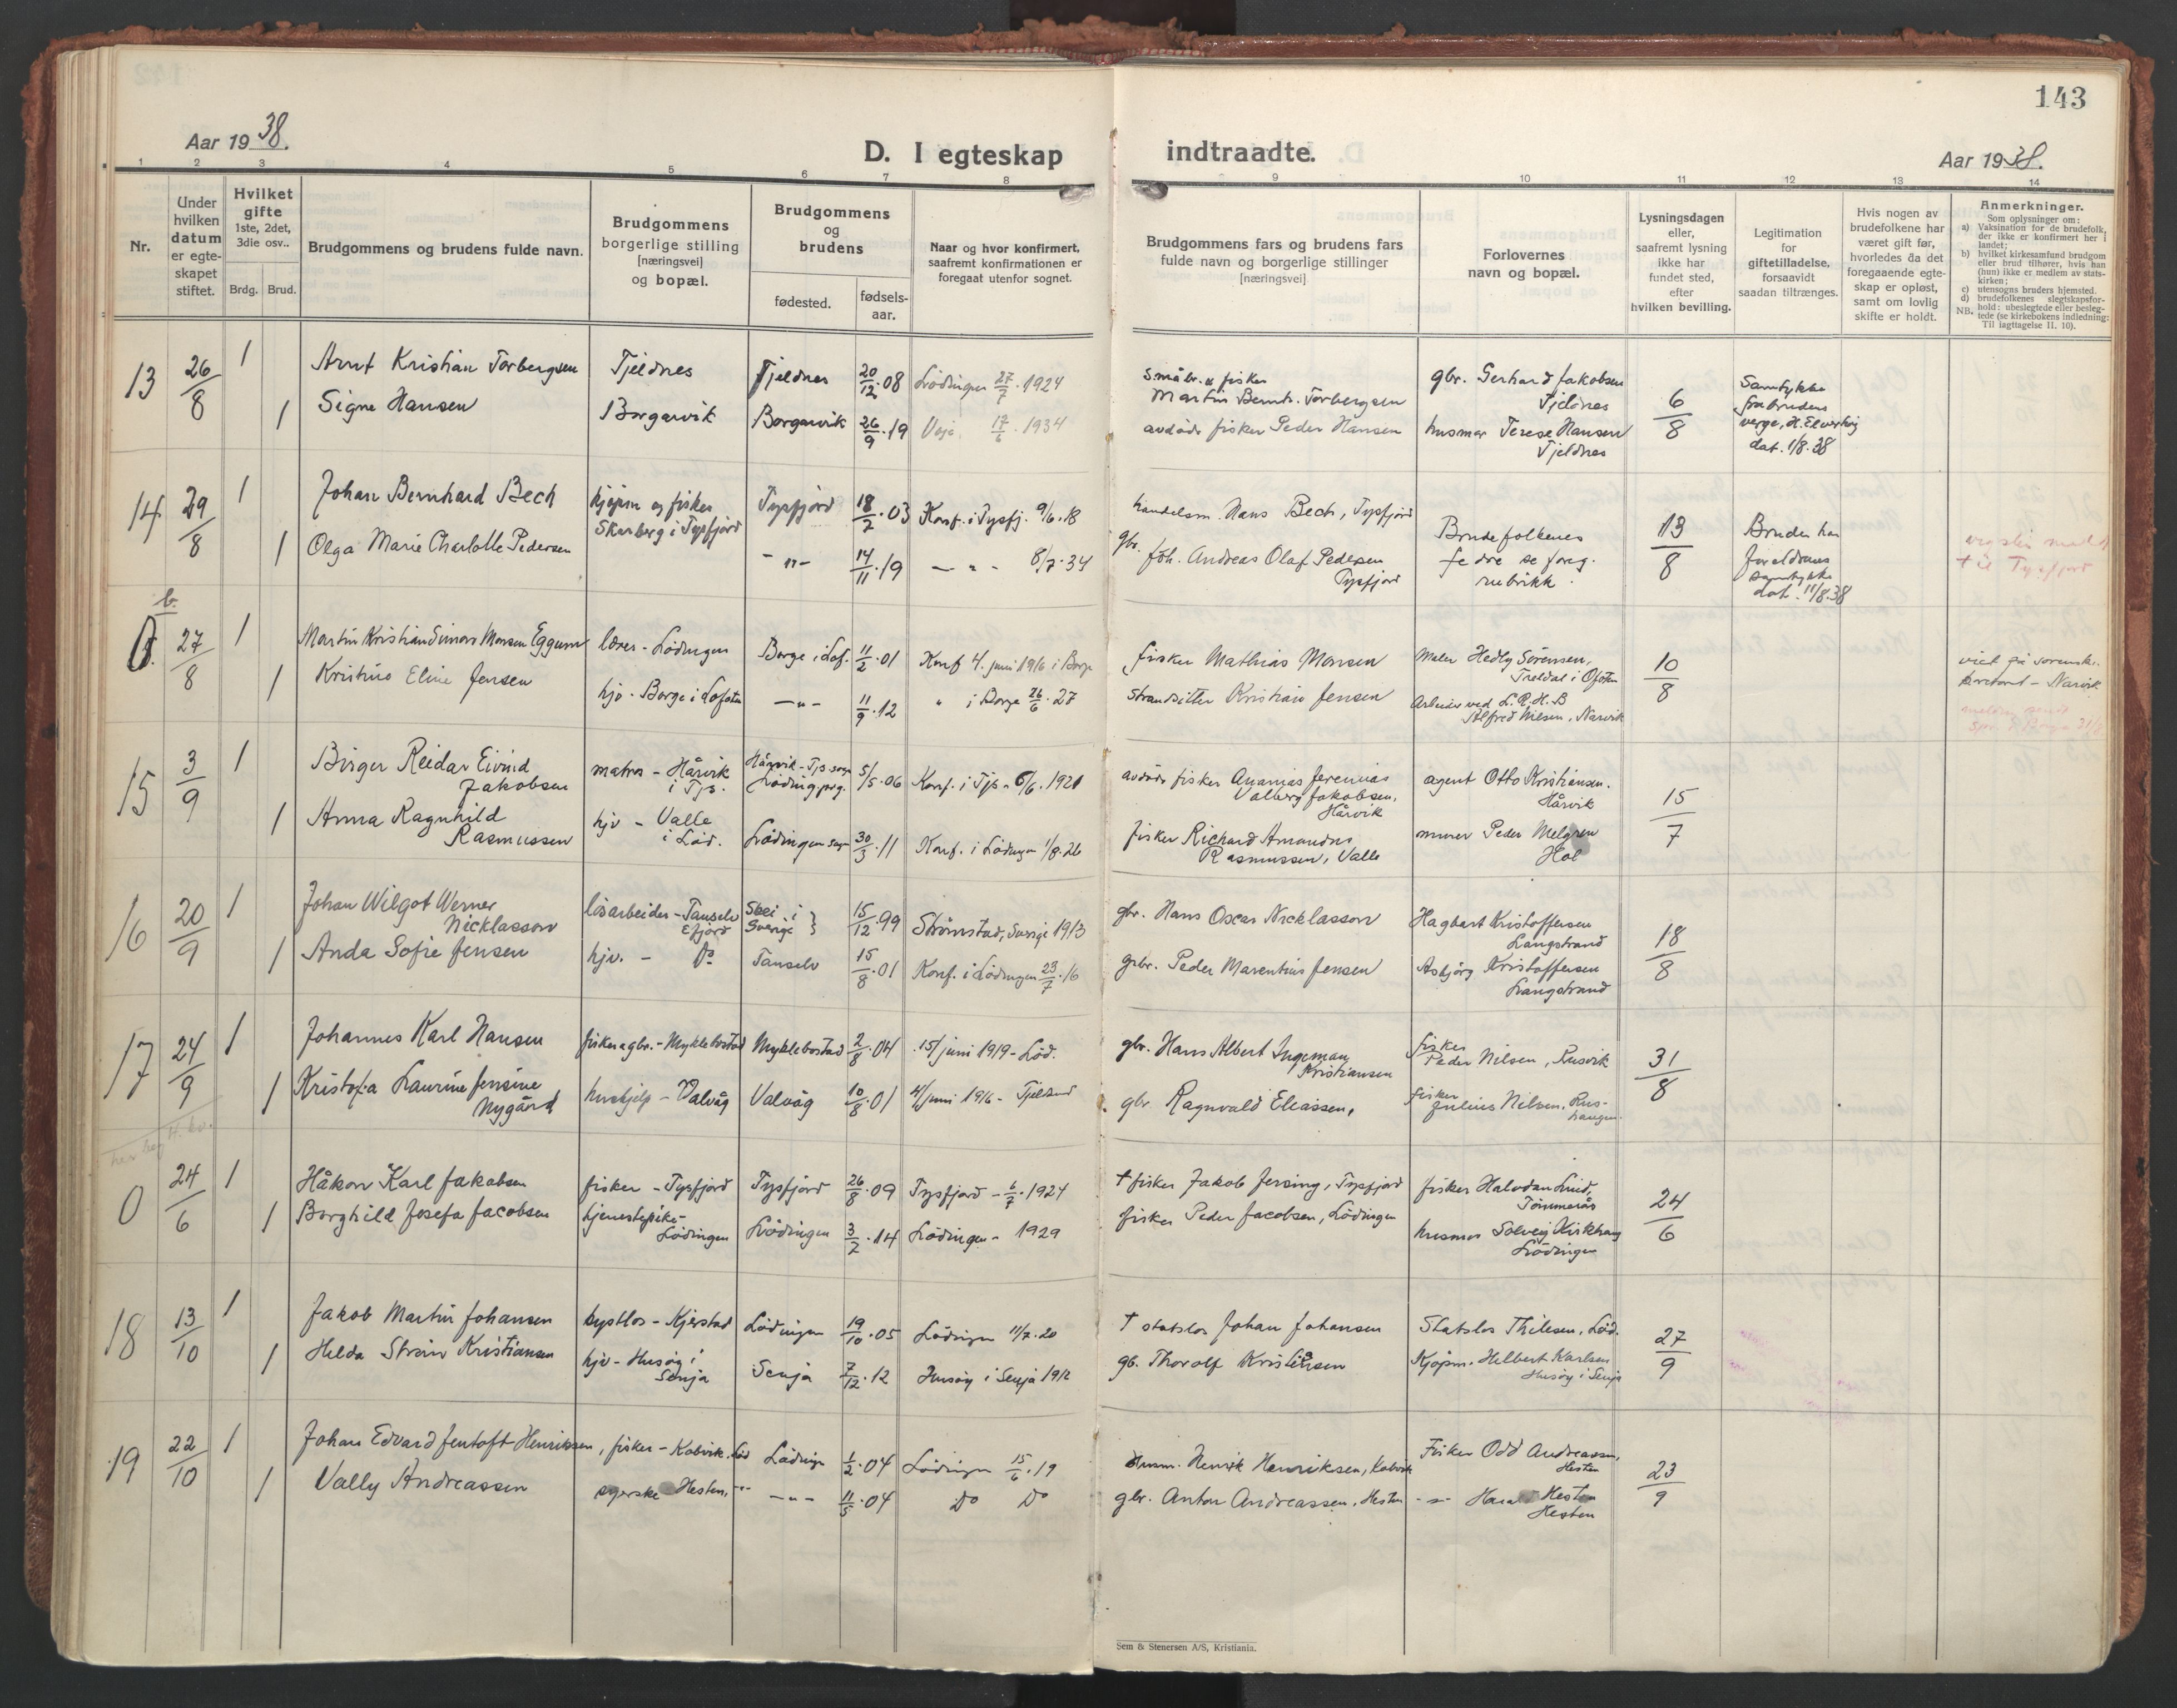 143
Aar 1938.
D. I egteskap
indtraadte.
Aar 1938.
1 2 3 4 5 6 7 8 9 10 11 12 13 14
Nr.
Under hvilken datum er egte-skapet stiftet.
Hvilket gifte
1ste, 2det, 3die osv..
Brdg. Brud.
Brudgommens og brudens fulde navn.
Brudgommens borgerlige stilling [næringsvei] og bopæl.
Brudgommens og brudens
fødested.
fødsels-aar.
Naar og hvor konfirmert, saafremt konfirmationen er foregaat utenfor sognet.
Brudgommens fars og brudens fars fulde navn og borgerlige stillinger [næringsvei]
Forlovernes navn og bopæl.
Lysningsdagen eller, saafremt lysning ikke har fundet sted, efter hvilken bevilling.
Legitimation for giftetilladelse, forsaavidt saadan tiltrænges.
Hvis nogen av brudefolkene har været gift før, hvorledes da det foregaaende egte-skap er opløst, samt om lovlig skifte er holdt.
Anmerkninger.
Som oplysninger om:
a) Vaksination for de brudefolk, der ikke er konfirmert her i landet;
b) hvilket kirkesamfund brudgom eller brud tilhører, hvis han (hun) ikke er medlem av stats-kirken;
c) utensogns bruders hjemsted.
d) brudefolkenes slegtskapsfor-hold: ubeslegtede eller besleg-tede (se kirkebokens indledning: Til iagttagelse II. 10).
NB.
13 26/8 1 Arnt Kristian Torbergsen Tjeldnes Tjeldnes 20/12.08 Lødingen 27/7.1924
1 Signe Hansen Borgarvik Borgarvik 26/9.19 17/6.1934
småbr. & fisker Martin Bernh. Torbergsen gbr. Gerhard Jakobsen Tjeldnes 6/8
avdøde fisker Peder Hansen husmor Terese Hansen Tjeldnes
Samtykke fra brudens verge, dat. 1/8.38
14 29/8 1 Johan Bernhard Bech kjøpm og fisker Skarberg i Tysfjord Tysfjord 18/2.03 Konf. i Tysfj. 9/6.18
1 Olga Marie Charlotte Pedersen -"- 14/11.19 - " - 8/7.34
handelsm. Hans Bech, Tysfjord
gbr. Joh. Andreas Olaf Pedersen Tysfjord
Brudefolkenes fedre se foreg. rubrikk.
13/8
Bruden har foreldrenes samtykke dat. 11/8.38
til Tysfjord
b.
27/8 1 Martin Kristian Monsen Eggum lærer - Lødingen Borge i Lof. 11/2.01 Konf 4. juni 1916 i Borge
1 Kristine Eline Jensen hjv. Borge i Lofoten -"- 11/9.12 " i Borge 26/6.27
fisker Mathias Monsen Maler Hedly Sørensen, Treldal i Ofoten 10/8
strandsitter Kristian Jensen Arbeider ved L.K.A.B Alfred Nilsen, Narvik
viet på sorenskr. kontoret - Narvik
15 3/9 1 Birger Reidar Eivind Jakobsen matros - Hårvik i Tjs. Hårvik - Tjs sogn Løding prg. 5/5.06 Konf. i Tjs - 6/6.1921
1 Anna Ragnhild Rasmussen hjv - Valle i Lød. Lødingen sogn 30/3.11 Konf. i Lødingen 1/8.26
avdøde fisker Ananias Jeremias Valberg Jakobsen, Hårvik agent Otto Kristiansen. Hårvik 15/7
fisker Richard Amandus Rasmussen, Valle murer Peder Melgren Hol
16 20/9 1 Johan Wilgot Werner Nicklasson løsarbeider - Tanselv Efjord Skei i Sverige 15/12.99 Strømstad, Sverige 1913
1 Anda Sofie Jensen hjv. - Do Tanselv 15/8.01 Konf. i Lødingen 23/7.16
gbr. Hans Oscar Nicklasson Hagbart Kristoffersen Langstrand 18/8
gbr. Peder Marentius Jensen Asbjørg Kristoffersen Langstrand
17 24/9 1 Johannes Karl Hansen fisker & gbr. - Myklebostad Myklebostad 2/8.04 15/juni 1919 - Lød.
1 Kristofa Laurine Jensine Nygård hushjelp - Valvåg Valvåg 10/8.01 4/juni 1916 - Tjeldsund
gbr. Hans Albert Ingeman Kristiansen fisker Peder Nilsen, Rusvik 31/8
gbr Ragnvald Eliassen, fisker Julius Nilsen, Rushaugen
0 24/6 1 Håkon Karl Jakobsen fisker - Tysfjord Tysfjord 26/8.09 Tysfjord - 6/7.1924
1 Borghild Josefa Jacobsen tjenestepike - Lødingen Lødingen 3/2.14 Lødingen - 1929
† fisker Jakob Jersing, Tysfjord fisker Halvdan Lind, Tømmerås 24/6
fisker Peder Jacobsen, Lødingen husmor Solveig Kirkhaug Lødingen
18 13/10 1 Jakob Martin Johansen kystlos - Kjerstad Lødingen 19/10.05 Lødingen 11/7.20
1 Helda Strøm Kristiansen hjv - Husøy i Senja Senja 7/12.12 Husøy i Senja 1912
† statslos Johan Johansen Statslos Thilesen, Lød. 27/9
gb. Thorolf Kristiansen Kjøpm. Helbert Karlsen Husøy i Senja
19 22/10 1 Johan Edvard Jentoft Henriksen, fisker - Kobvik. Lød Lødingen 1/2.04 Lødingen 15/6.19
1 Vally Andreassen syerske Hesten, -"- -"- 11/5.04 Do Do
Henrik Henriksen, Kobvik Fisker Odd Andreassen, Hesten 23/9
gbr. Anton Andreassen, Hesten -"- Hesten Hesten
Sem & Stenersen A/S, Kristiania.